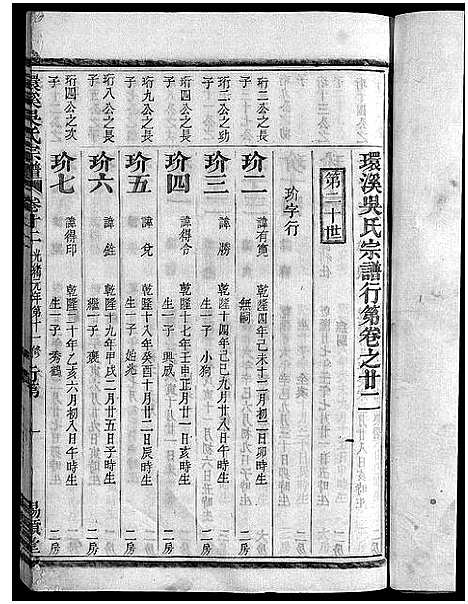 環溪吳氏宗譜行第卷之廿二
第二十世
玠字行
珩二公之長子
玠二 諱有寬 乾隆四年己未十二月初二日卯時生 無嗣 二房
珩三公之幼子
玠三 諱勝 乾隆十四年己巳九月廿八日午時生 生一子 小狗 二房
珩四公之長子
玠四 諱得令 乾隆十七年壬申正月廿一日亥時生 生一子 興咸 二房
珩九公之長子
玠五 諱兌 乾隆十八年癸酉十月廿二日辰時生 生一子 始兆 二房
珩八公之長子
玠六 諱銓 乾隆十九年甲戌二月廿五日子時生 繼一子 褒 二房
珩四公之次子
玠七 諱得印 乾隆二十年乙亥六月初八日午時生 生一子 秀鶴 二房
環溪吳氏宗譜 卷廿二 光緒元年第十一修 行第 一